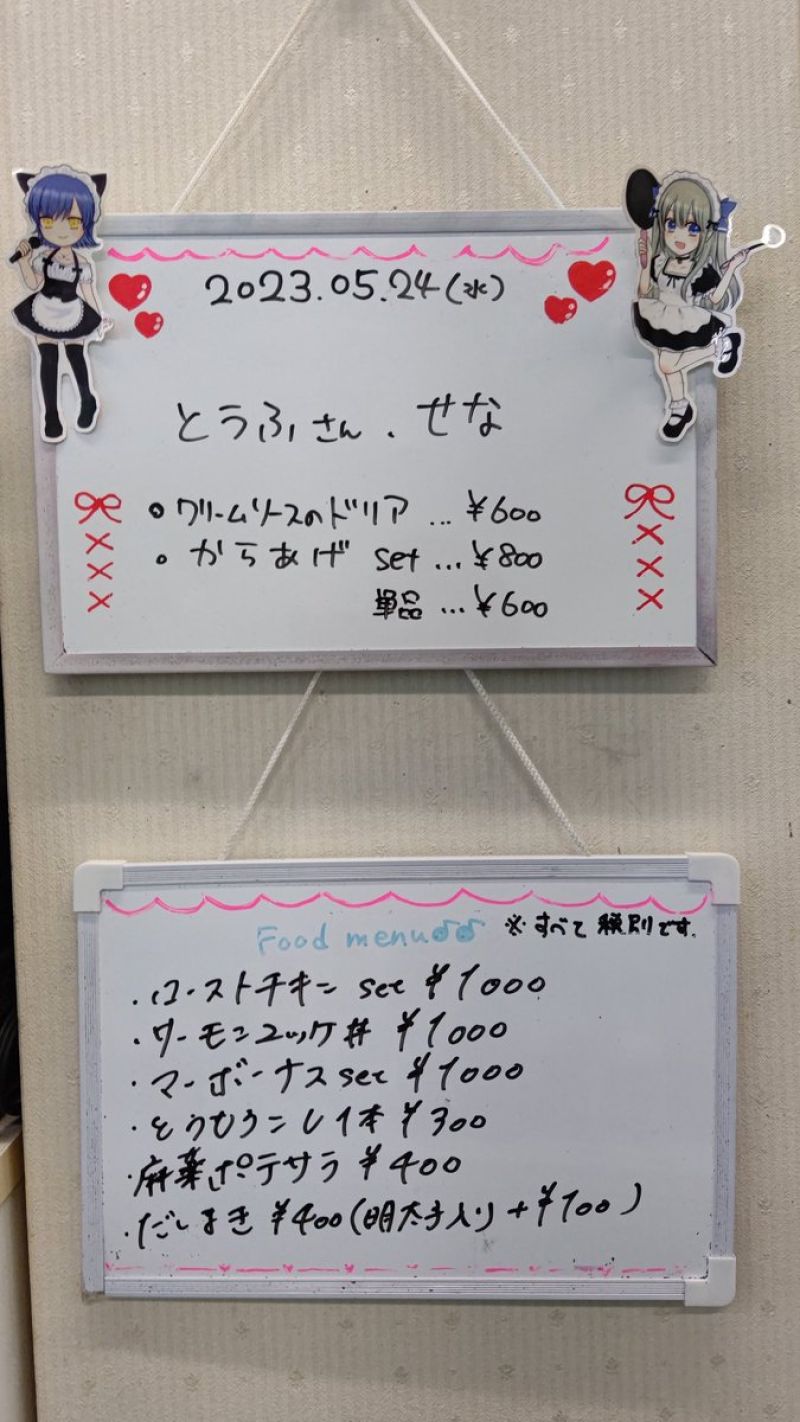 2023.05.24(水)
とうふさん.せな
• クリームソースのドリア ... ¥600
• からあげ set ... ¥800
単品 ... ¥600
Food menu♫♫ ※すべて税別です.
・ローストチキン set ¥1000
・サーモンユッケ丼 ¥1000
・マーボーナス set ¥1000
・とうもろこし1本 ¥300
・麻薬ポテサラ ¥400
・だしまき ¥400(明太子入り+¥100)